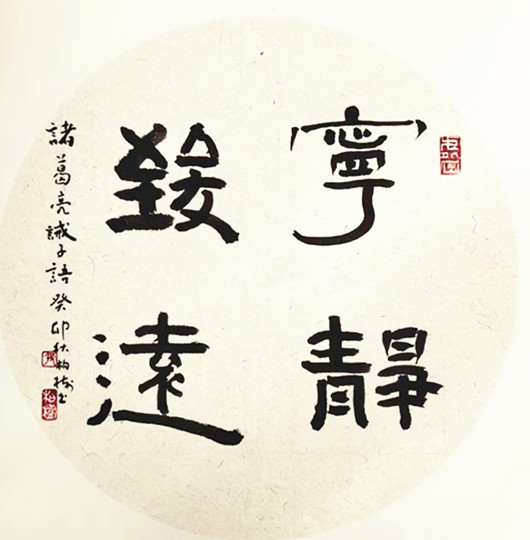 寧靜
致遠
諸葛亮誡子語癸卯秋柏樹書